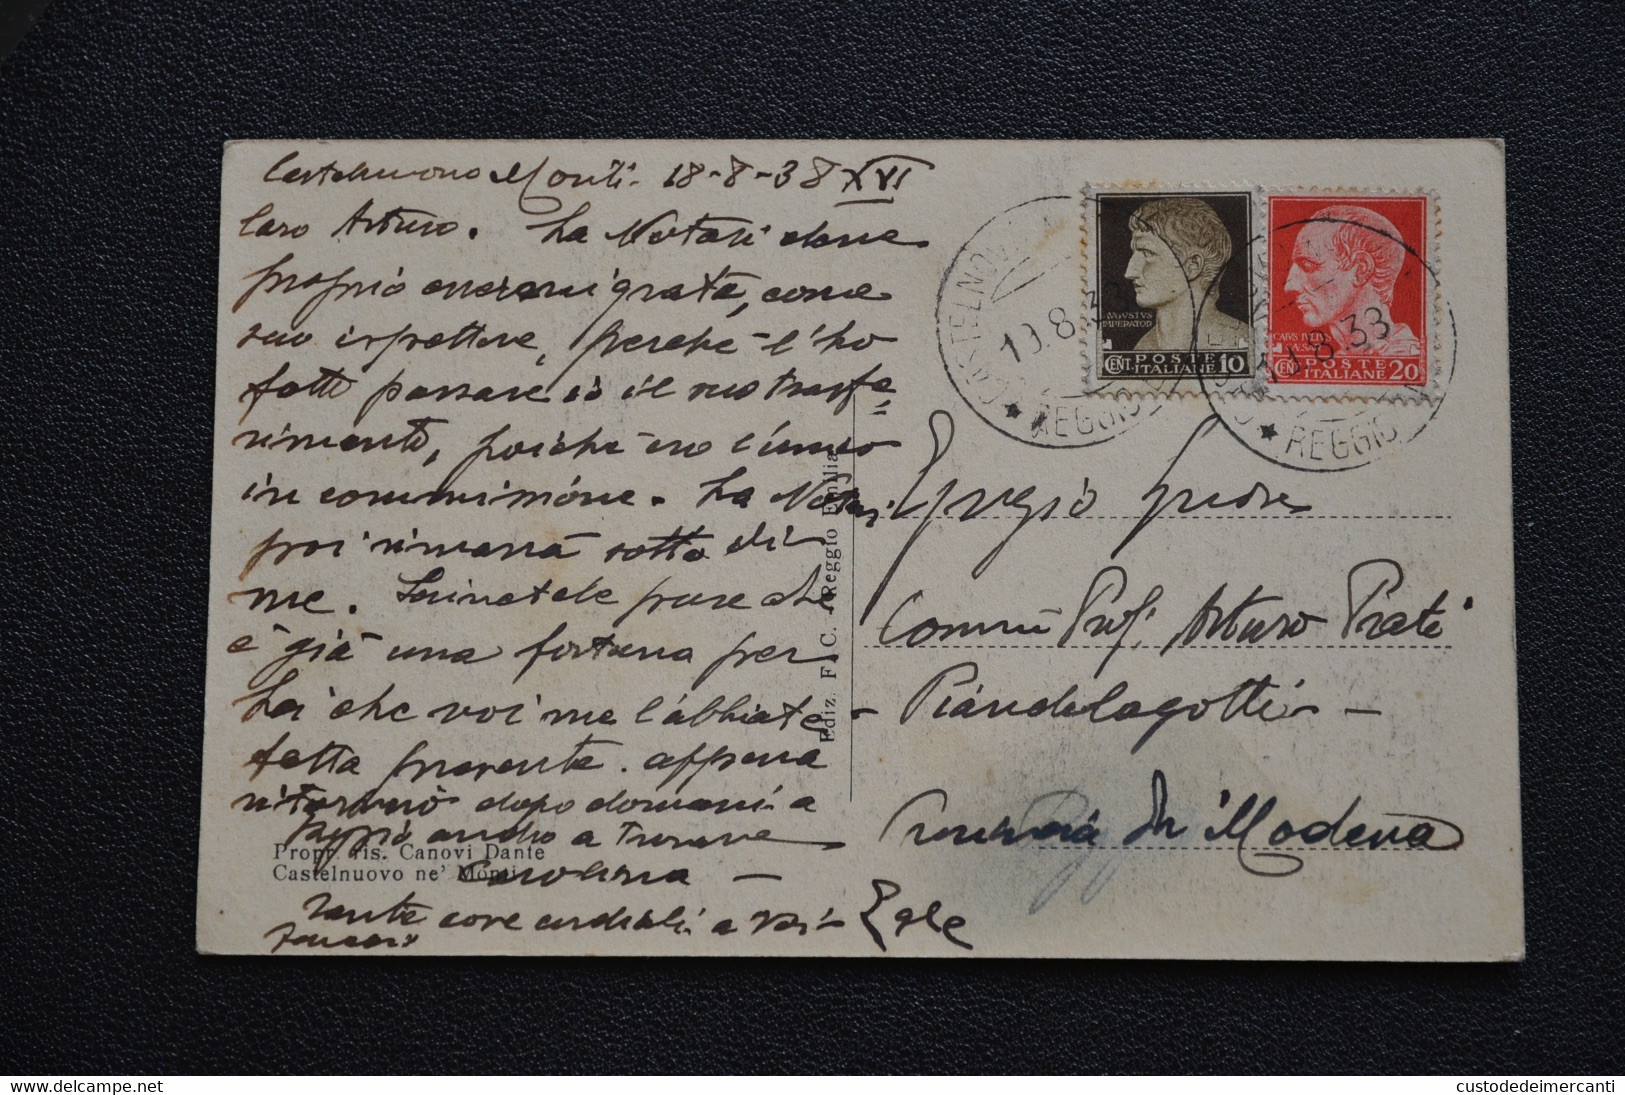 Castelnuovo Monti. 18-8-38 XVI
Caro Arturo. La Notari deve
proprio essermi grata, come
suo ispettore, perché l'ho
fatta passare io il suo trasfe=
rimento, poiché ero l'unico
in commissione. La Notari
poi rimarrà sotto di
me. Scrivetele pure che
è già una fortuna per
Lei che voi me l'abbiate
fatta presente. appena
ritornerò dopo domani a
Reggio andrò a trovare
Carolina —
tante cose cordiali a voi Egle
Propr. ris. Canovi Dante
Castelnuovo ne' Monti
Ediz. F. C. Reggio Emilia
AVGVSTVS
IMPERATOR
CENT. POSTE ITALIANE 10
CAIVS IVLIVS
CAESAR
CENT. POSTE ITALIANE 20
CASTELNOVO
19.8.38
REGGIO
19.8.38
REGGIO
Egregio Signore
Prof. Arturo Prati
— Piandelagotti —
Provincia di Modena
delcampe.net
custodedeimercanti